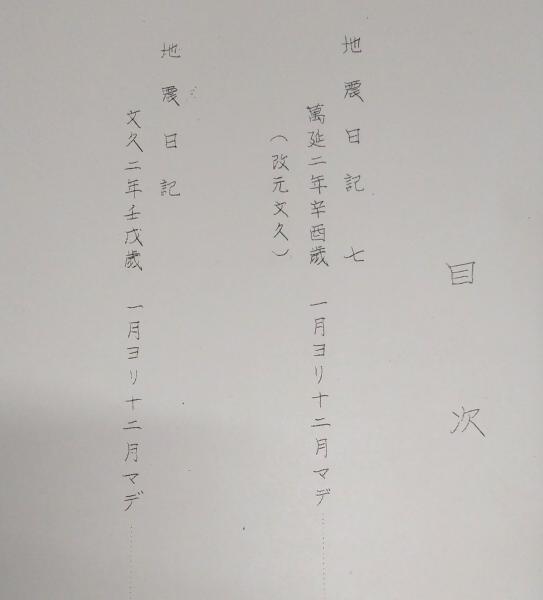 目次
地震日記 七
萬延二年辛酉歳 一月ヨリ十二月マデ……
(改元文久)
地震日記
文久二年壬戌歳 一月ヨリ十二月マデ……